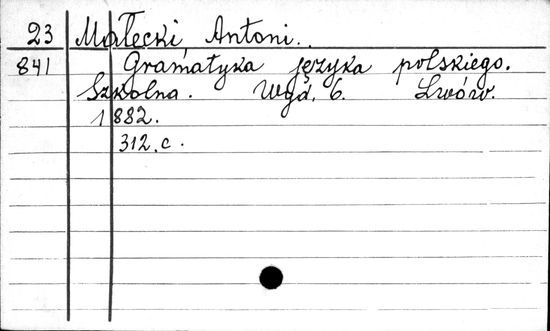 23 Małecki Antoni..
841 Gramatyka języka polskiego.
Szkolna. Wyd. 6. Lwów.
1882.
312. c.